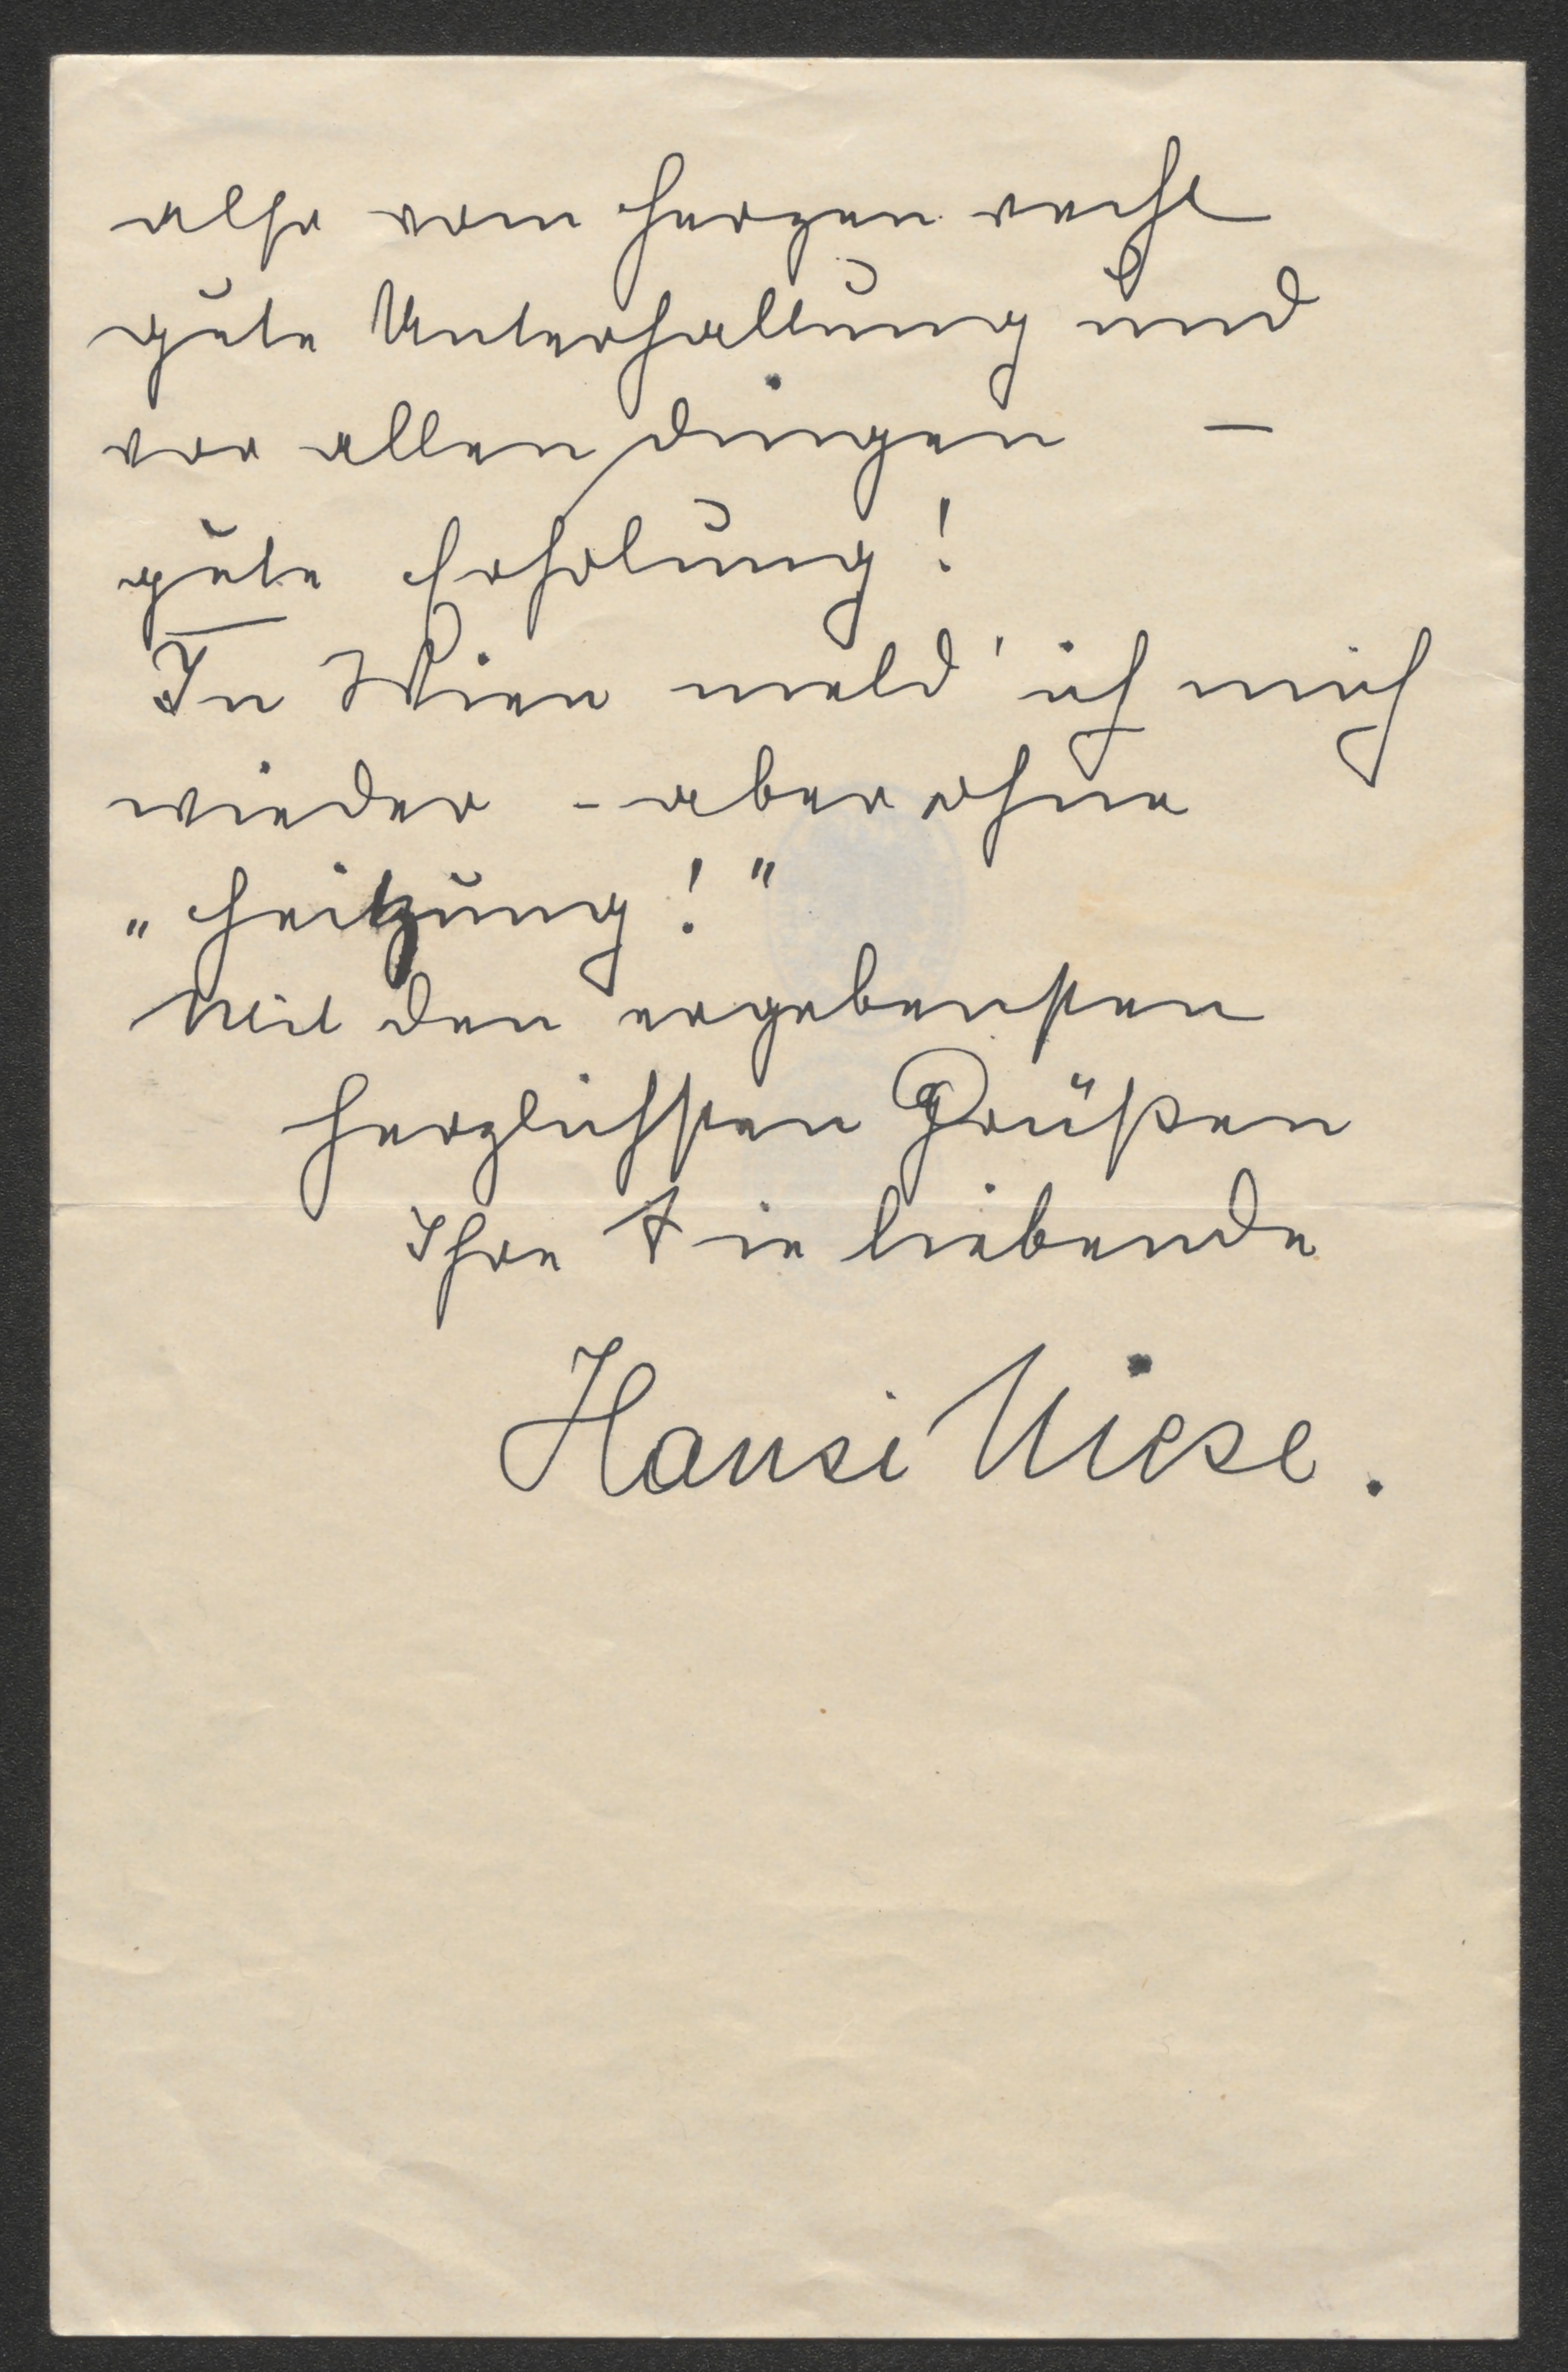 also vom Herzen recht
gute Unterhaltung und
vor allen dingen –
gute Erholung!
In Wien meld' ich mich
wieder – aber ohne
„Heitzung!"
Mit den ergebensten
herzlichsten Grüßen
Ihre Sie liebende
Hansi Niese.